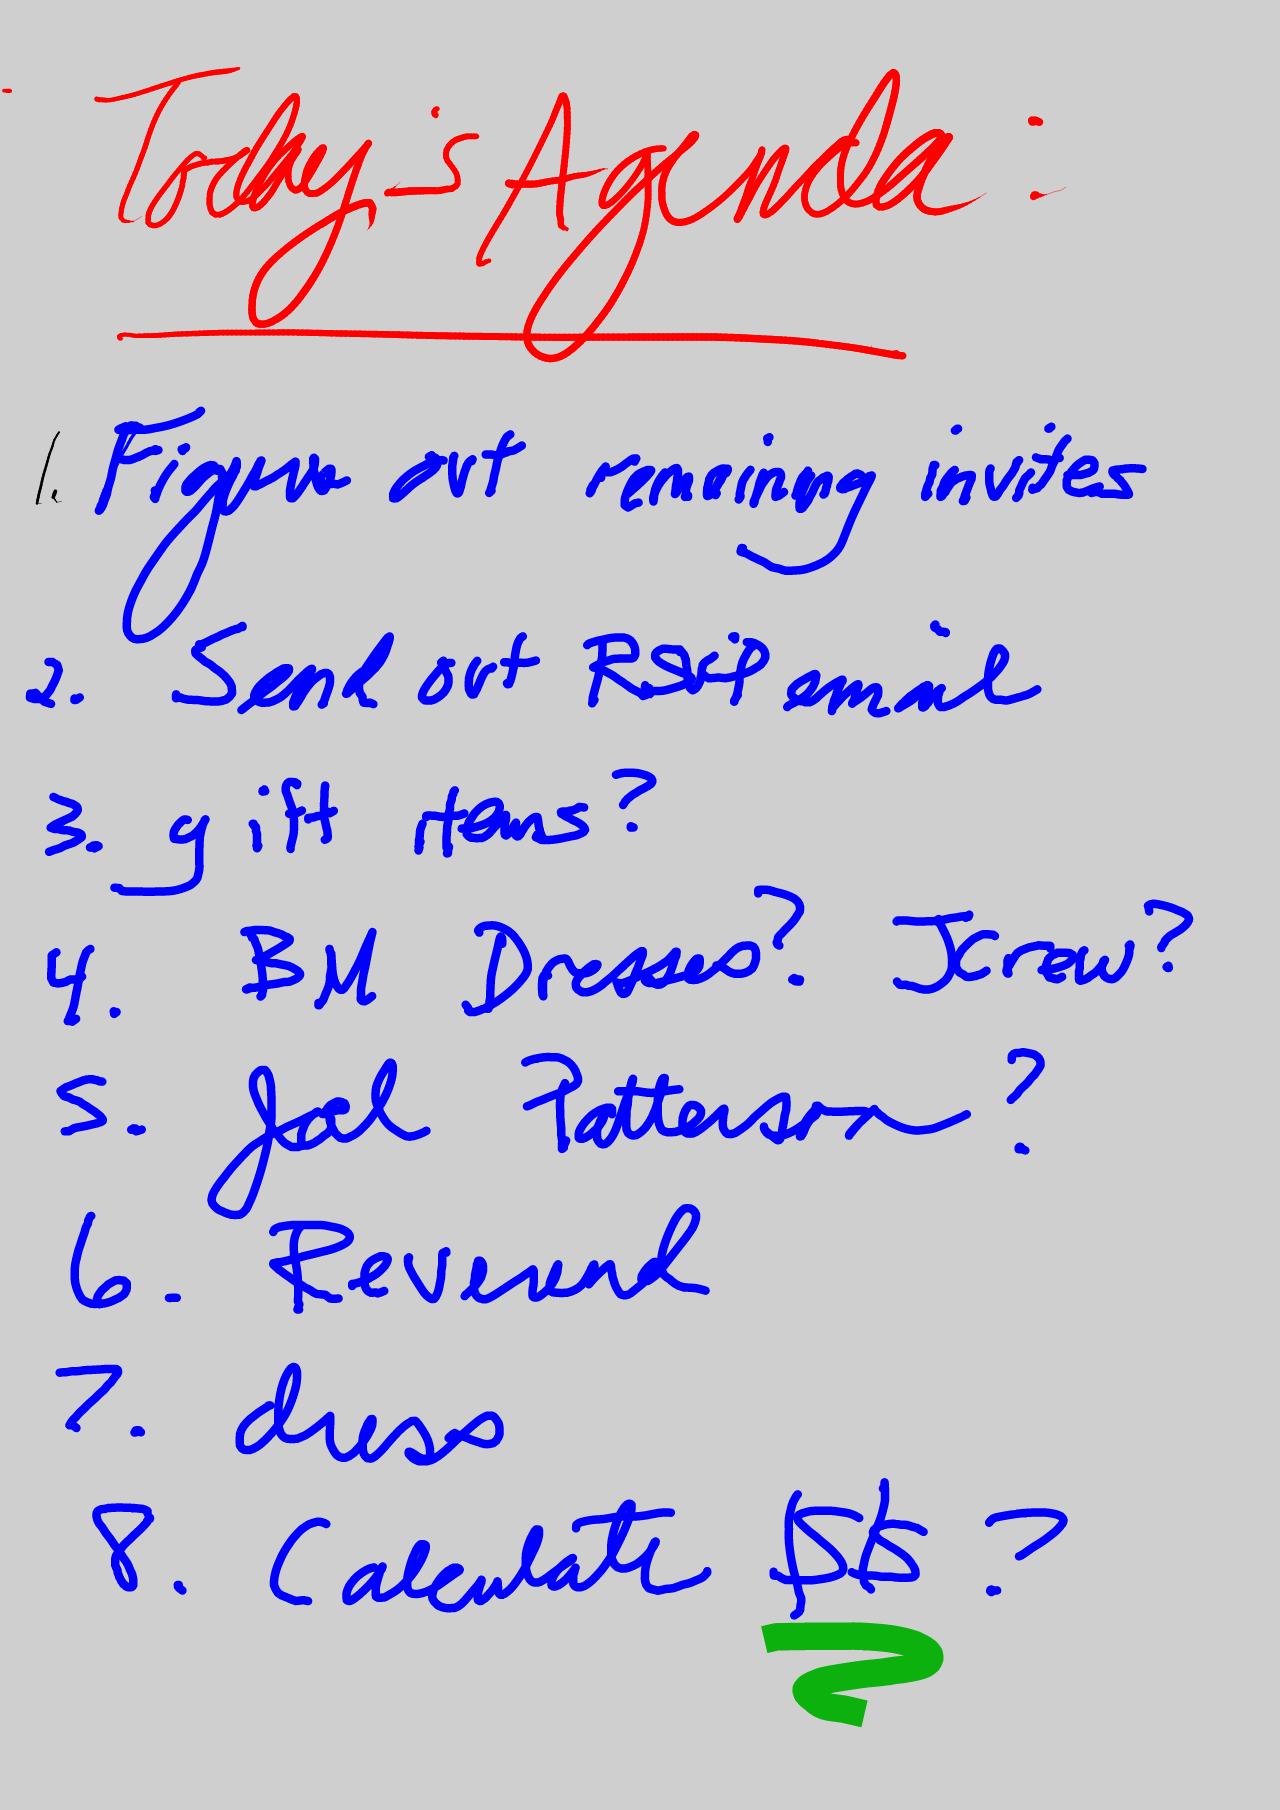 Today's Agenda:
1. Figure out remaining invites
2. Send out RSVP email
3. gift items?
4. BM Dresses? JCrew?
5. Joel Patterson?
6. Reverend
7. dress
8. Calculate $$?